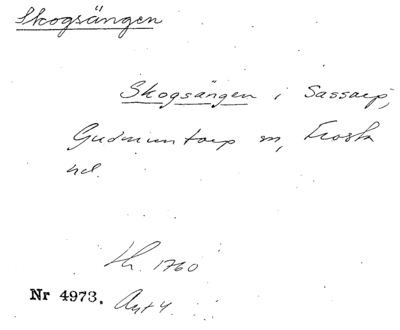 Skogsängen
Skogsängen i Sassarp,
Gudmuntorp sn, Frosta
hd.
Lh. 1760
Nr 4973. Akt 4.